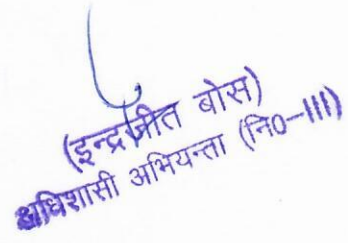 (इन्द्रजीत बोस)
अधिशासी अभियन्ता (नि0-III)